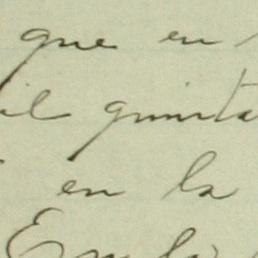 que en
il quinta
en la
En la